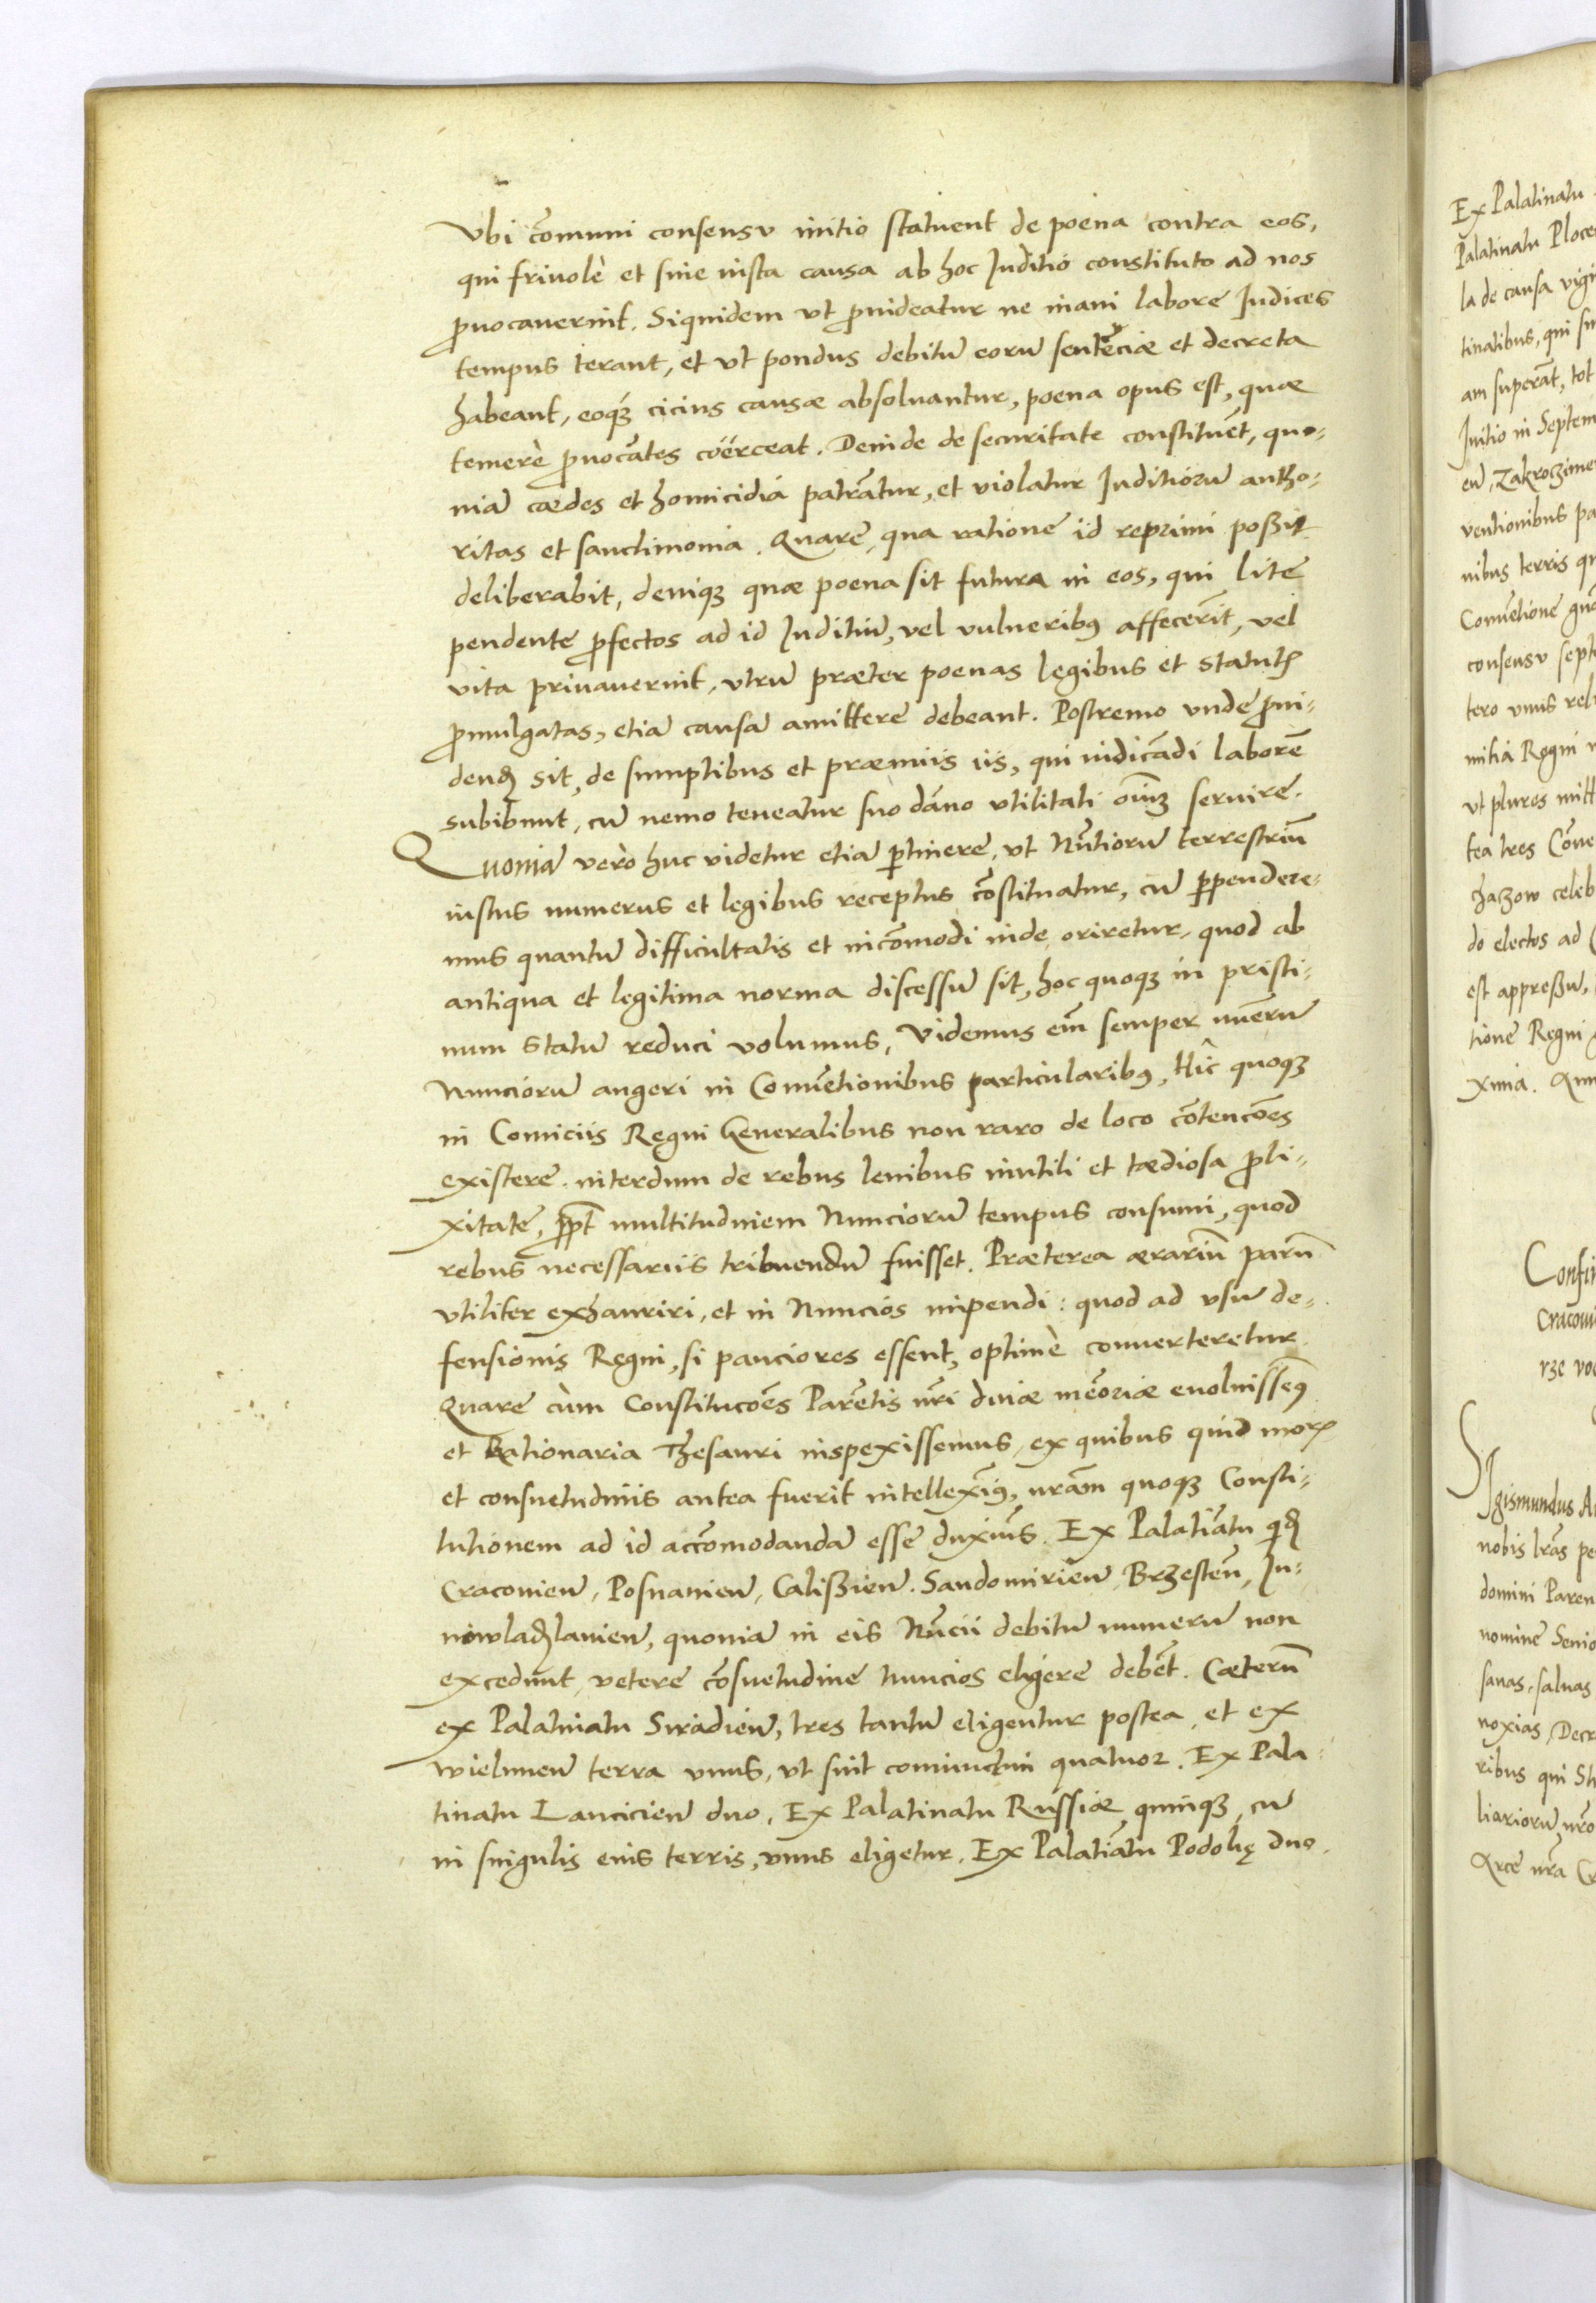 Vbi com̃uni consensv initio statuent de poena contra eos,
qui friuolè et sine iusta causa ab hoc Juditio constituto ad nos
ꝓuocauerint. Siquidem vt ꝓuideatur ne inani labore Judices
tempus terant, et vt pondus debitū eorū sentēciæ et decreta
habeant, eoqꝫ́ cicius causæ absoluantur, poena opus est, quæ
temerè ꝓuocātes coërceat. Deinde de securitate constituēt, quo-
niā cædes et homicidia patrātur, et violatur Juditiorū autho-
ritas et sanctimonia. Quare, qua ratione id reprimi poßit
deliberabit, deniqꝫ quæ poena sit futura in eos, qui lite
pendente ꝓfectos ad id Juditiū, vel vulneribꝰ affecerīt, vel
vita priuauerint, vtrū præter poenas legibus et statutꝭ
ꝓmulgatas, etiā causā amittere debeant. Postremo vnde ꝓui-
dendꝭ sit, de sumptibus et præmiis iis, qui iudicādi laborē
subibunt, cū nemo teneatur suo dāno vtilitati oīm servire.
Quoniā verò huc videtur etiā ꝑtinere, vt Nūtiorū terrestriū
iustus numerus et legibus receptus cōstituatur, cū ꝑpendere-
mus quantū difficultatis et incōmodi inde oriretur, quod ab
antiqua et legitima norma discessū sit, hoc quoqꝫ in pristi-
num statū reduci volumus, Videmus em̄ semper nūerū
Nunciorū augeri in Conuētionibus particularibꝰ, Hic quoqꝫ
in Comiciis Regni Generalibus non raro de loco cōtencōes
existere. interdum de rebus leuibus inutili et tædiosa ꝓli-
xitate, ꝓpt̄ multitudinem Nunciorū tempus consumi, quod
rebus necessariis tribuendū fuisset. Præterea ærariū parū
vtiliter exhauriri, et in Nuncios impendi: quod ad vsū de-
fensionis Regni, si pauciores essent, optimè conuerteretur
Quare cùm Constitucōes Parētis nr̄i diuæ mēoriæ euoluissemꝰ
et Rationaria Thesauri inspexissemus, ex quibus quid morꝭ
et consuetudinis antea fuerit intellexim̄ꝰ, nr̄am quoqꝫ Consti-
tutionem ad id accōmodandā esse duxim̄s. Ex Palatiātu qidꝭ
Cracouien̄, Posnanien̄, Calißien̄. Sandomirien̄, Brzesten̄, Ju-
niowladꝭlauien̄, quoniā in eis Nūcii debitū numerū non
excedunt, vetere cōsuetudine nuncios eligere debēt. Cæterū
ex Palatinatu Siradien̄, tres tantū eligentur postea, et ex
Wielunen̄ terra vnus, vt sint coniunctim quatuor. Ex Pala-
tinatu Lancicien̄ duo. Ex Palatinatu Russiæ quinqꝫ, cū
in singulis eius terris, vnus eligetur. Ex Palatiātu Podolię duo.
Ex Palatinatu
Palatinatu Ploce
la de causa vigi
tinatibus, qui su
am superāt, tot
Initio in Septem
en̄, Zakroczime
ventionibus pa
nibus terris qu
Conuētione
consensv septe
tero vnus
mitia Regni
vt plures mitt
tea tres Cōue
chaczow celeb
do electos ad
est appreßū,
tione Regni
xima.
Confir
Cracoui
rze
Sigismundus
nobis lr̄as pe
domini Paren
nomine Senio
sanas, saluas
noxias, Decr
ribus qui St
liariorū nr̄o
Arce nr̄a Cr